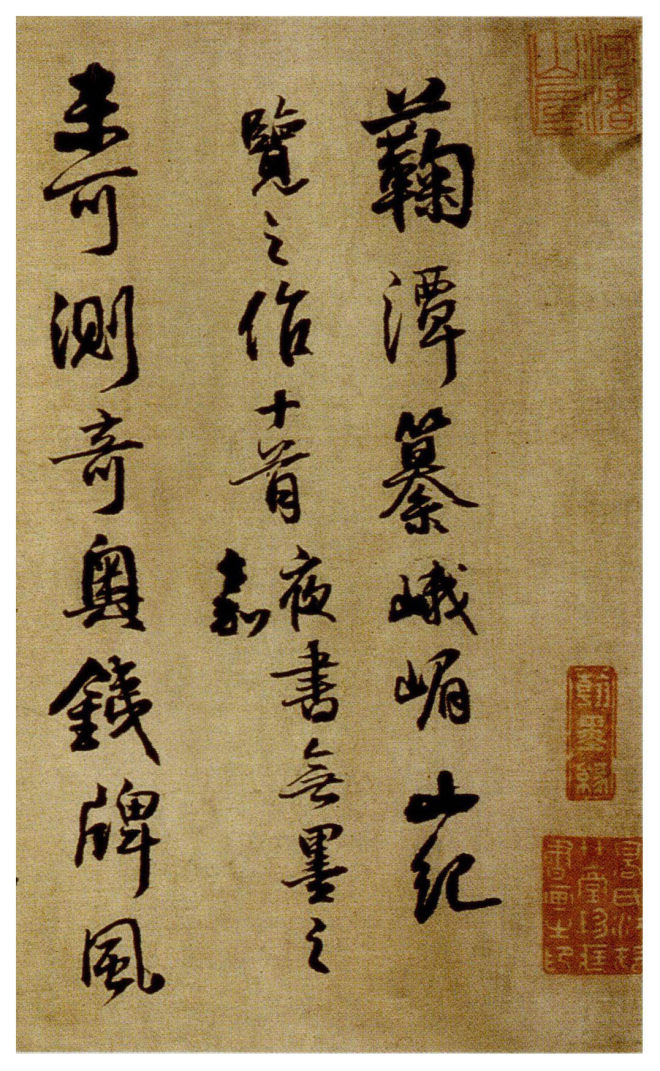 蘜潭纂峨嵋山紀
覽之作十首夜書無墨之
嘉
未可測奇奧錢牌風